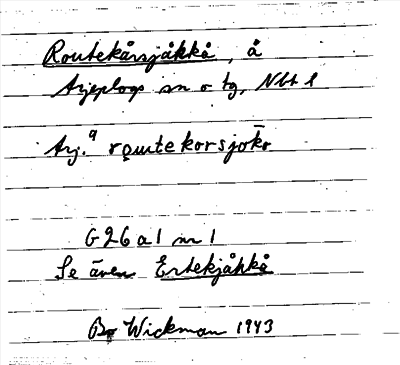 Routekårsjåkkå, å
Arjeplogs sn o tg, Nbt l
Arj.q routekorsjokɷ
G26 a1 nr 1
Se även Ertekjåkkå
Bo Wickman 1943